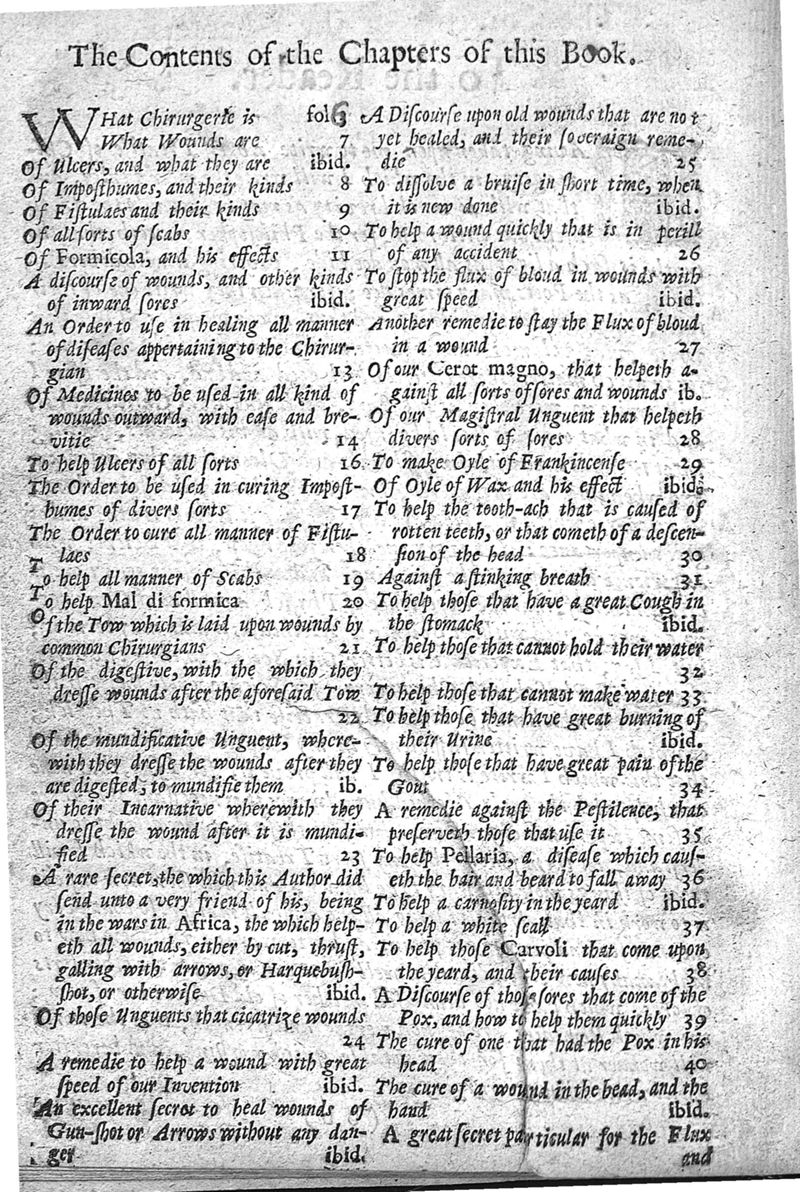 The Contents of the Chapters of this Book.
WHat Chirurgerie is fol 6
What Wounds are 7
Of Ulcers, and what they are ibid.
Of Imposthumes, and their kinds 8
Of Fistulaes and their kinds 9
Of all sorts of scabs 10
Of Formicola, and his effects 11
A discourse of wounds, and other kinds
of inward sores ibid.
An Order to use in healing all manner
of diseases appertaining to the Chirur-
gian 13
Of Medicines to be used in all kind of
wounds outward, with ease and bre-
vitie 14
To help Ulcers of all sorts 16
The Order to be used in curing Impost-
humes of divers sorts 17
The Order to cure all manner of Fistu-
laes 18
To help all manner of Scabs 19
To help Mal di formica 20
Of the Tow which is laid upon wounds by
common Chirurgians 21
Of the digestive, with the which they
dresse wounds after the aforesaid Tow
22
Of the mundificative Unguent, where-
with they dresse the wounds after they
are digested, to mundifie them ib.
Of their Incarnative wherewith they
dresse the wound after it is mundi-
fied 23
A rare secret, the which this Author did
send unto a very friend of his, being
in the wars in Africa, the which help-
eth all wounds, either by cut, thrust,
galling with arrows, or Harquebush-
shot, or otherwise ibid.
Of those Unguents that cicatrize wounds
24
A remedie to help a wound with great
speed of our Invention ibid.
An excellent secret to heal wounds of
Gun-shot or Arrows without any dan-
ger ibid.
A Discourse upon old wounds that are not
yet healed, and their soveraign reme-
die 25
To dissolve a bruise in short time, when
it is new done ibid.
To help a wound quickly that is in perill
of any accident 26
To stop the flux of bloud in wounds with
great speed ibid.
Another remedie to stay the Flux of bloud
in a wound 27
Of our Cerot magno, that helpeth a-
gainst all sorts of sores and wounds ib.
Of our Magistral Unguent that helpeth
divers sorts of sores 28
To make Oyle of Frankincense 29
Of Oyle of Wax and his effect ibid.
To help the tooth-ach that is caused of
rotten teeth, or that cometh of a descen-
sion of the head 30
Against a stinking breath 31
To help those that have a great Cough in
the stomack ibid.
To help those that cannot hold their water
32
To help those that cannot make water 33
To help those that have great burning of
their Urine ibid.
To help those that have great pain of the
Gout 34
A remedie against the Pestilence, that
preserveth those that use it 35
To help Pellaria, a disease which caus-
eth the hair and beard to fall away 36
To help a carnosity in the yeard ibid.
To help a white scall 37
To help those Carvoli that come upon
the yeard, and their causes 38
A Discourse of those sores that come of the
Pox, and how to help them quickly 39
The cure of one that had the Pox in his
head 40
The cure of a wound in the head, and the
hand ibid.
A great secret particular for the Flux
and